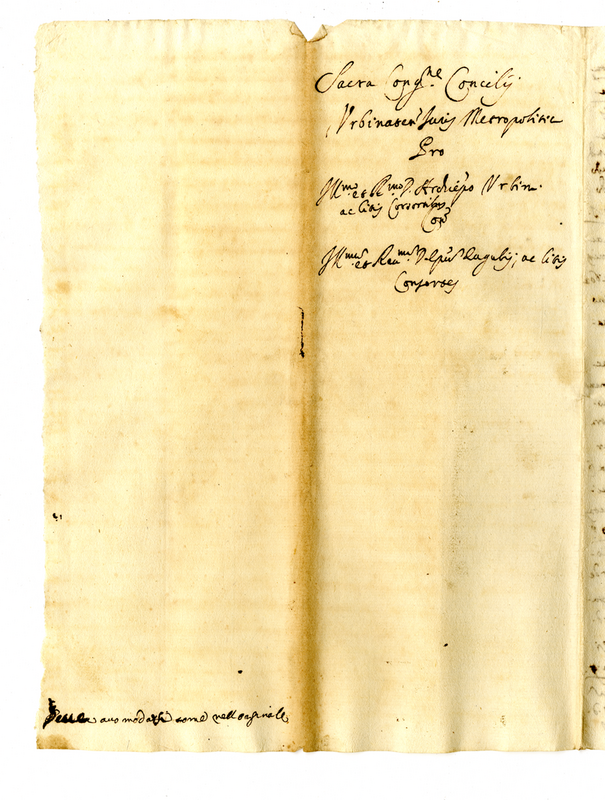 Sacra Cong.ne Concilij
Urbinaten Juris Metropolitic
Pro
Ill.mo et R.mo D. Archiepo Urbin.
ac litis Consortibus
Con
Ill.mus et Reu.mus D. Epus Eugubij, ac litis
Consortes
accomodarsi come nell originale